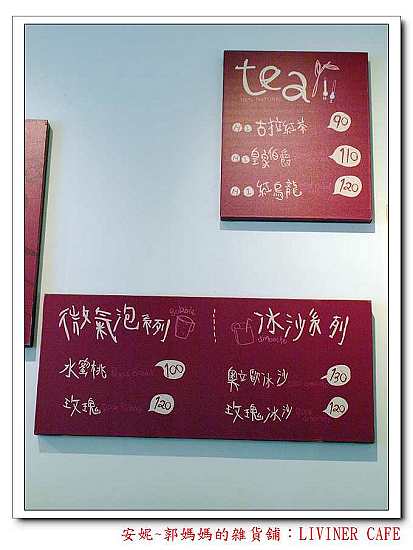 tea
古拉紅茶 90
皇家伯爵 110
紅烏龍 120
微氣泡系列 Bubble
水蜜桃 100
玫瑰 120
冰沙系列 smoothie
奧立歐冰沙 130
玫瑰冰沙 120
安妮~郭媽媽的雜貨鋪：LIVINER CAFE